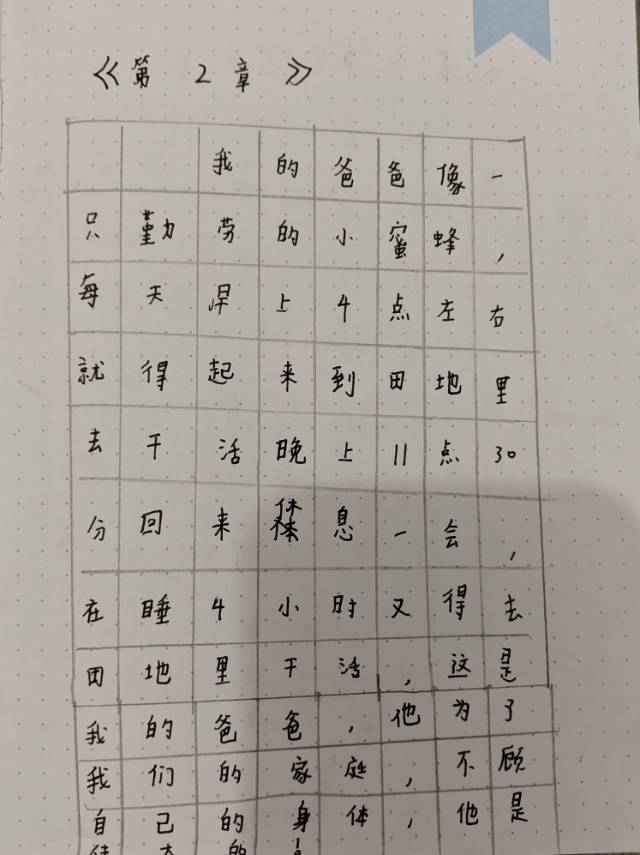 《第2章》
我的爸爸像一
只勤劳的小蜜蜂，
每天早上4点左右
就得起来到田地里
去干活晚上11点30
分回来休息一会，
在睡4小时又得去
田地里干活，这是
我的爸爸，他为了
我们的家庭，不顾
自己的身体，他是